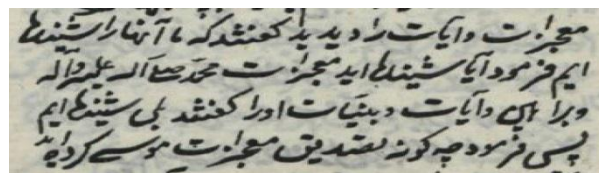 معجزات و آیات را دیدید گفتند که ما آنها را شنیده
ایم فرمود آیا شنیده‌اید معجزات محمد صلی الله علیه و آله
و براهین و آیات و بینات او را گفتند بلی شنیده‌ایم
پس فرمود چه گونه تصدیق معجزات موسی کرده‌اید